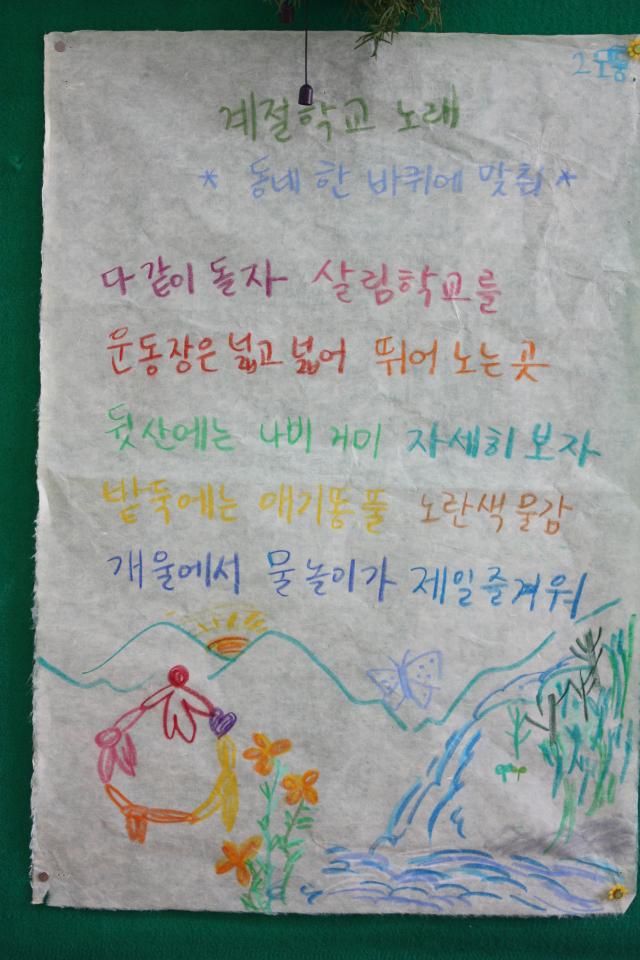 계절학교 노래
* 동네 한 바퀴에 맞춰 *
다같이 돌자 살림학교를
운동장은 넓고 넓어 뛰어 노는 곳
뒷산에는 나비 거미 자세히 보자
밭둑에는 애기똥풀 노란색 물감
개울에서 물놀이가 제일 즐거워